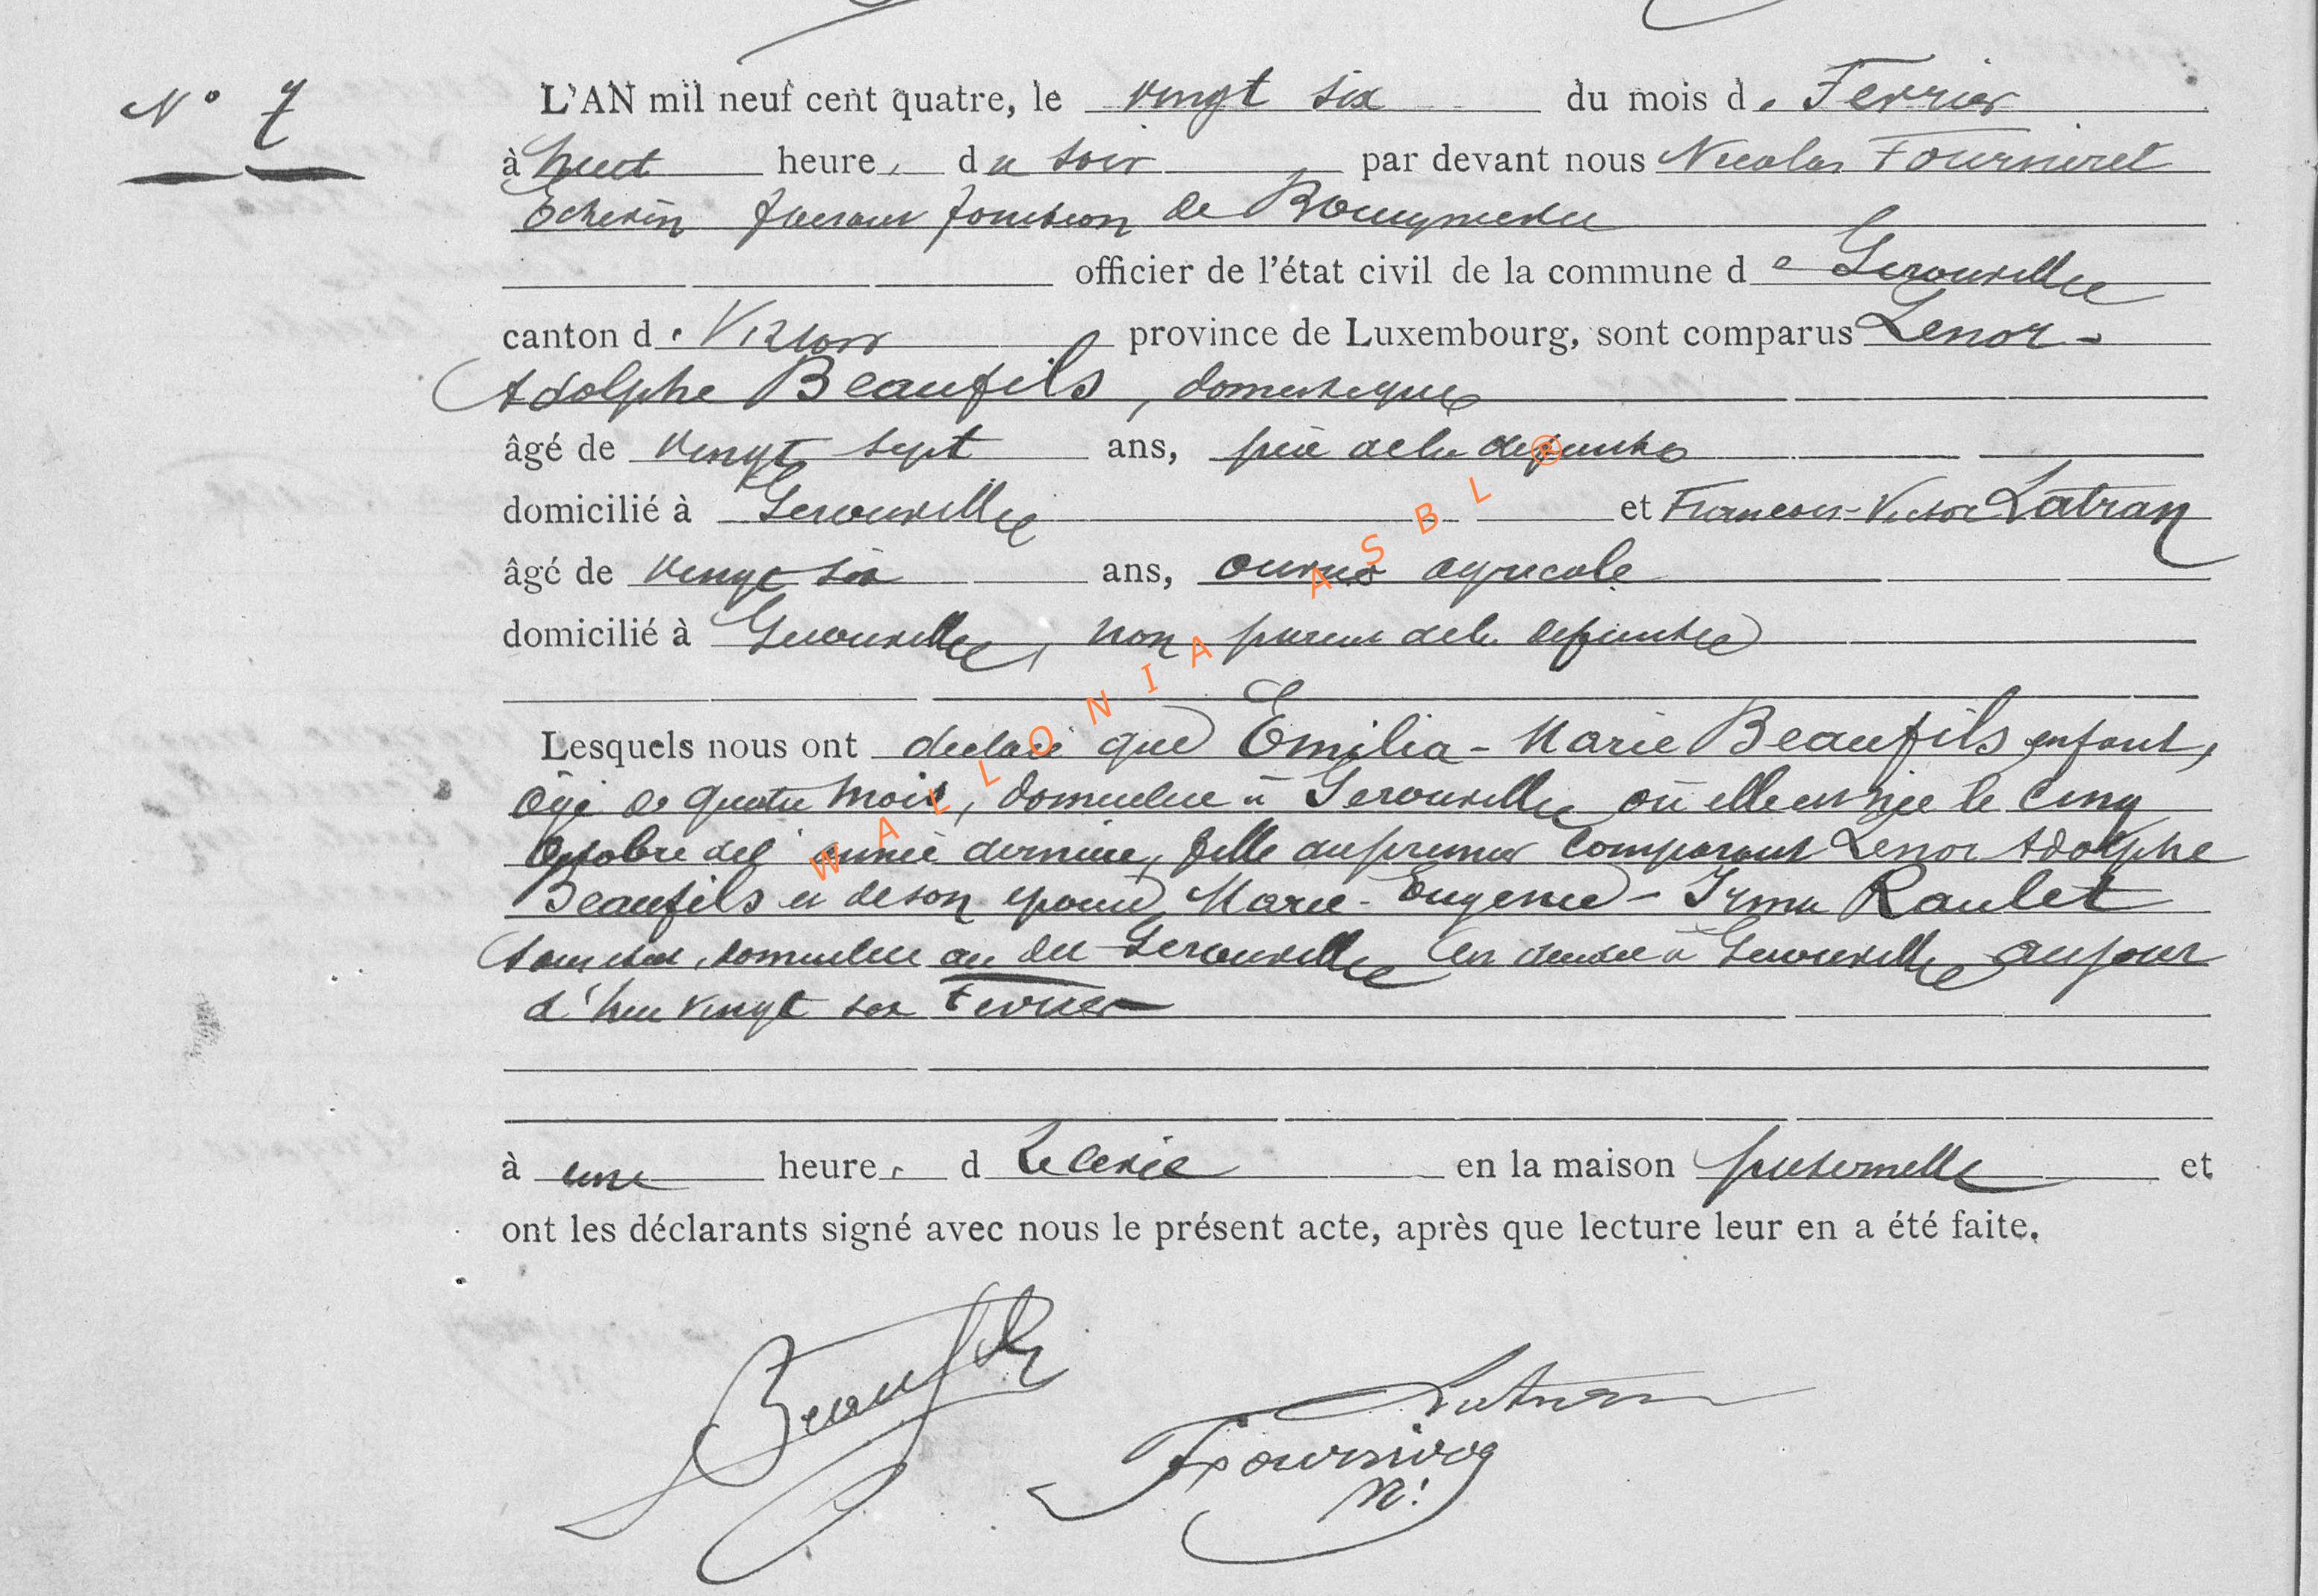 N° 7
L'AN mil neuf cent quatre, le vingt six du mois de Fevrier
à huit heure, du soir par devant nous Nicolas Fourniret
Echevin faisant fonction de Bourgmestre
officier de l'état civil de la commune de Gerouville
canton de Virton province de Luxembourg, sont comparus Lenor-
Adolphe Beaufils, domestique
âgé de vingt sept ans, père de la defunte
domicilié à Gerouville et Francois-Victor Latran
âgé de vingt six ans, ouvrier agricole
domicilié à Gerouville, non parent de la defunte
Lesquels nous ont declaré que Emilia-Marie Beaufils enfant,
âgé de quatre mois, domiciliee à Gerouville où elle est née le cinq
Octobre de l'année derniere, fille du premier comparant Lenor Adolphe
Beaufils et de son epouse Marie-Eugenie-Irma Raulet
domiciliee au dit Gerouville est decedee à Gerouville aujour
d'hui vingt six Fevrier
à une heure, d relevée en la maison paternelle et
ont les déclarants signé avec nous le présent acte, après que lecture leur en a été faite.
Beaufils
Latran
Fourniret
N:
WALLONIA ASBL ®